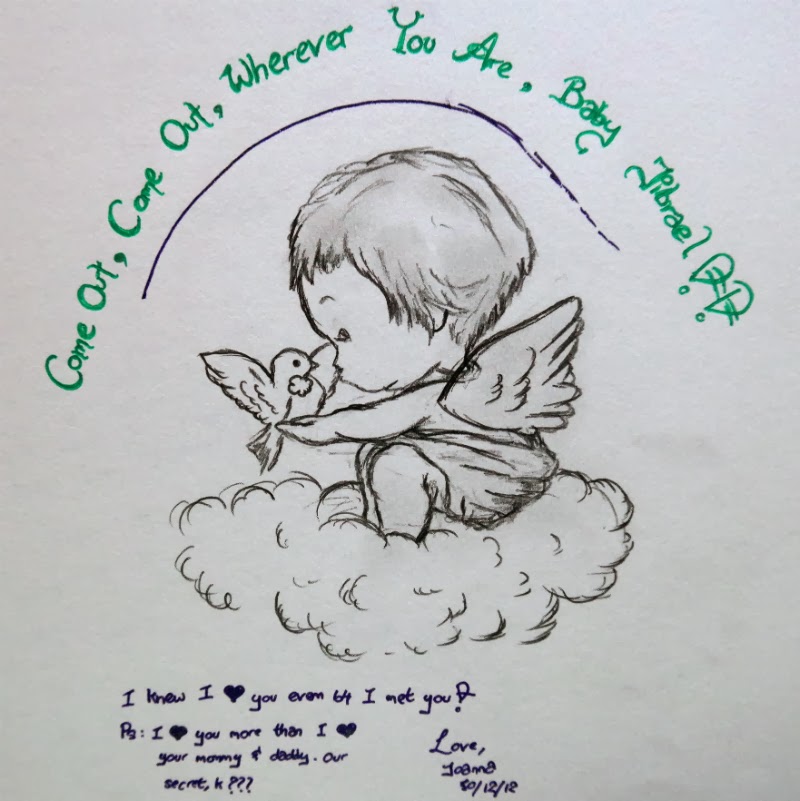 Come Out, Come Out, Wherever You Are, Baby Jibrael!!
I knew I ♥ you even b4 I met you!
Ps: I ♥ you more than I ♥
your mommy & daddy. Our
secret, k???
Love,
Joanna
30/12/12